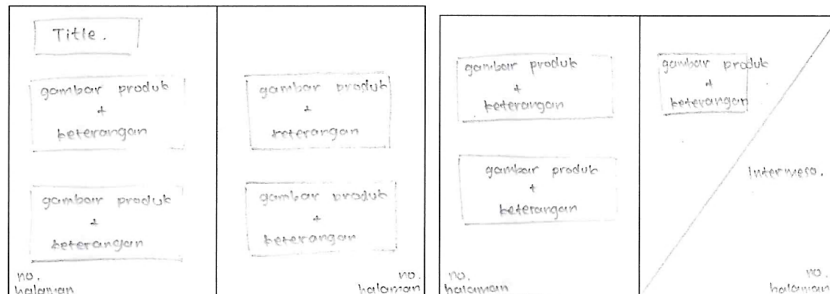 Title.
gambar produk
+
keterangan
gambar produk
+
keterangan
no.
halaman
gambar produk
+
keterangan
gambar produk
+
keterangan
no.
halaman
gambar produk
+
keterangan
gambar produk
+
keterangan
no.
halaman
gambar produk
+
keterangan
Intermeso.
no.
halaman